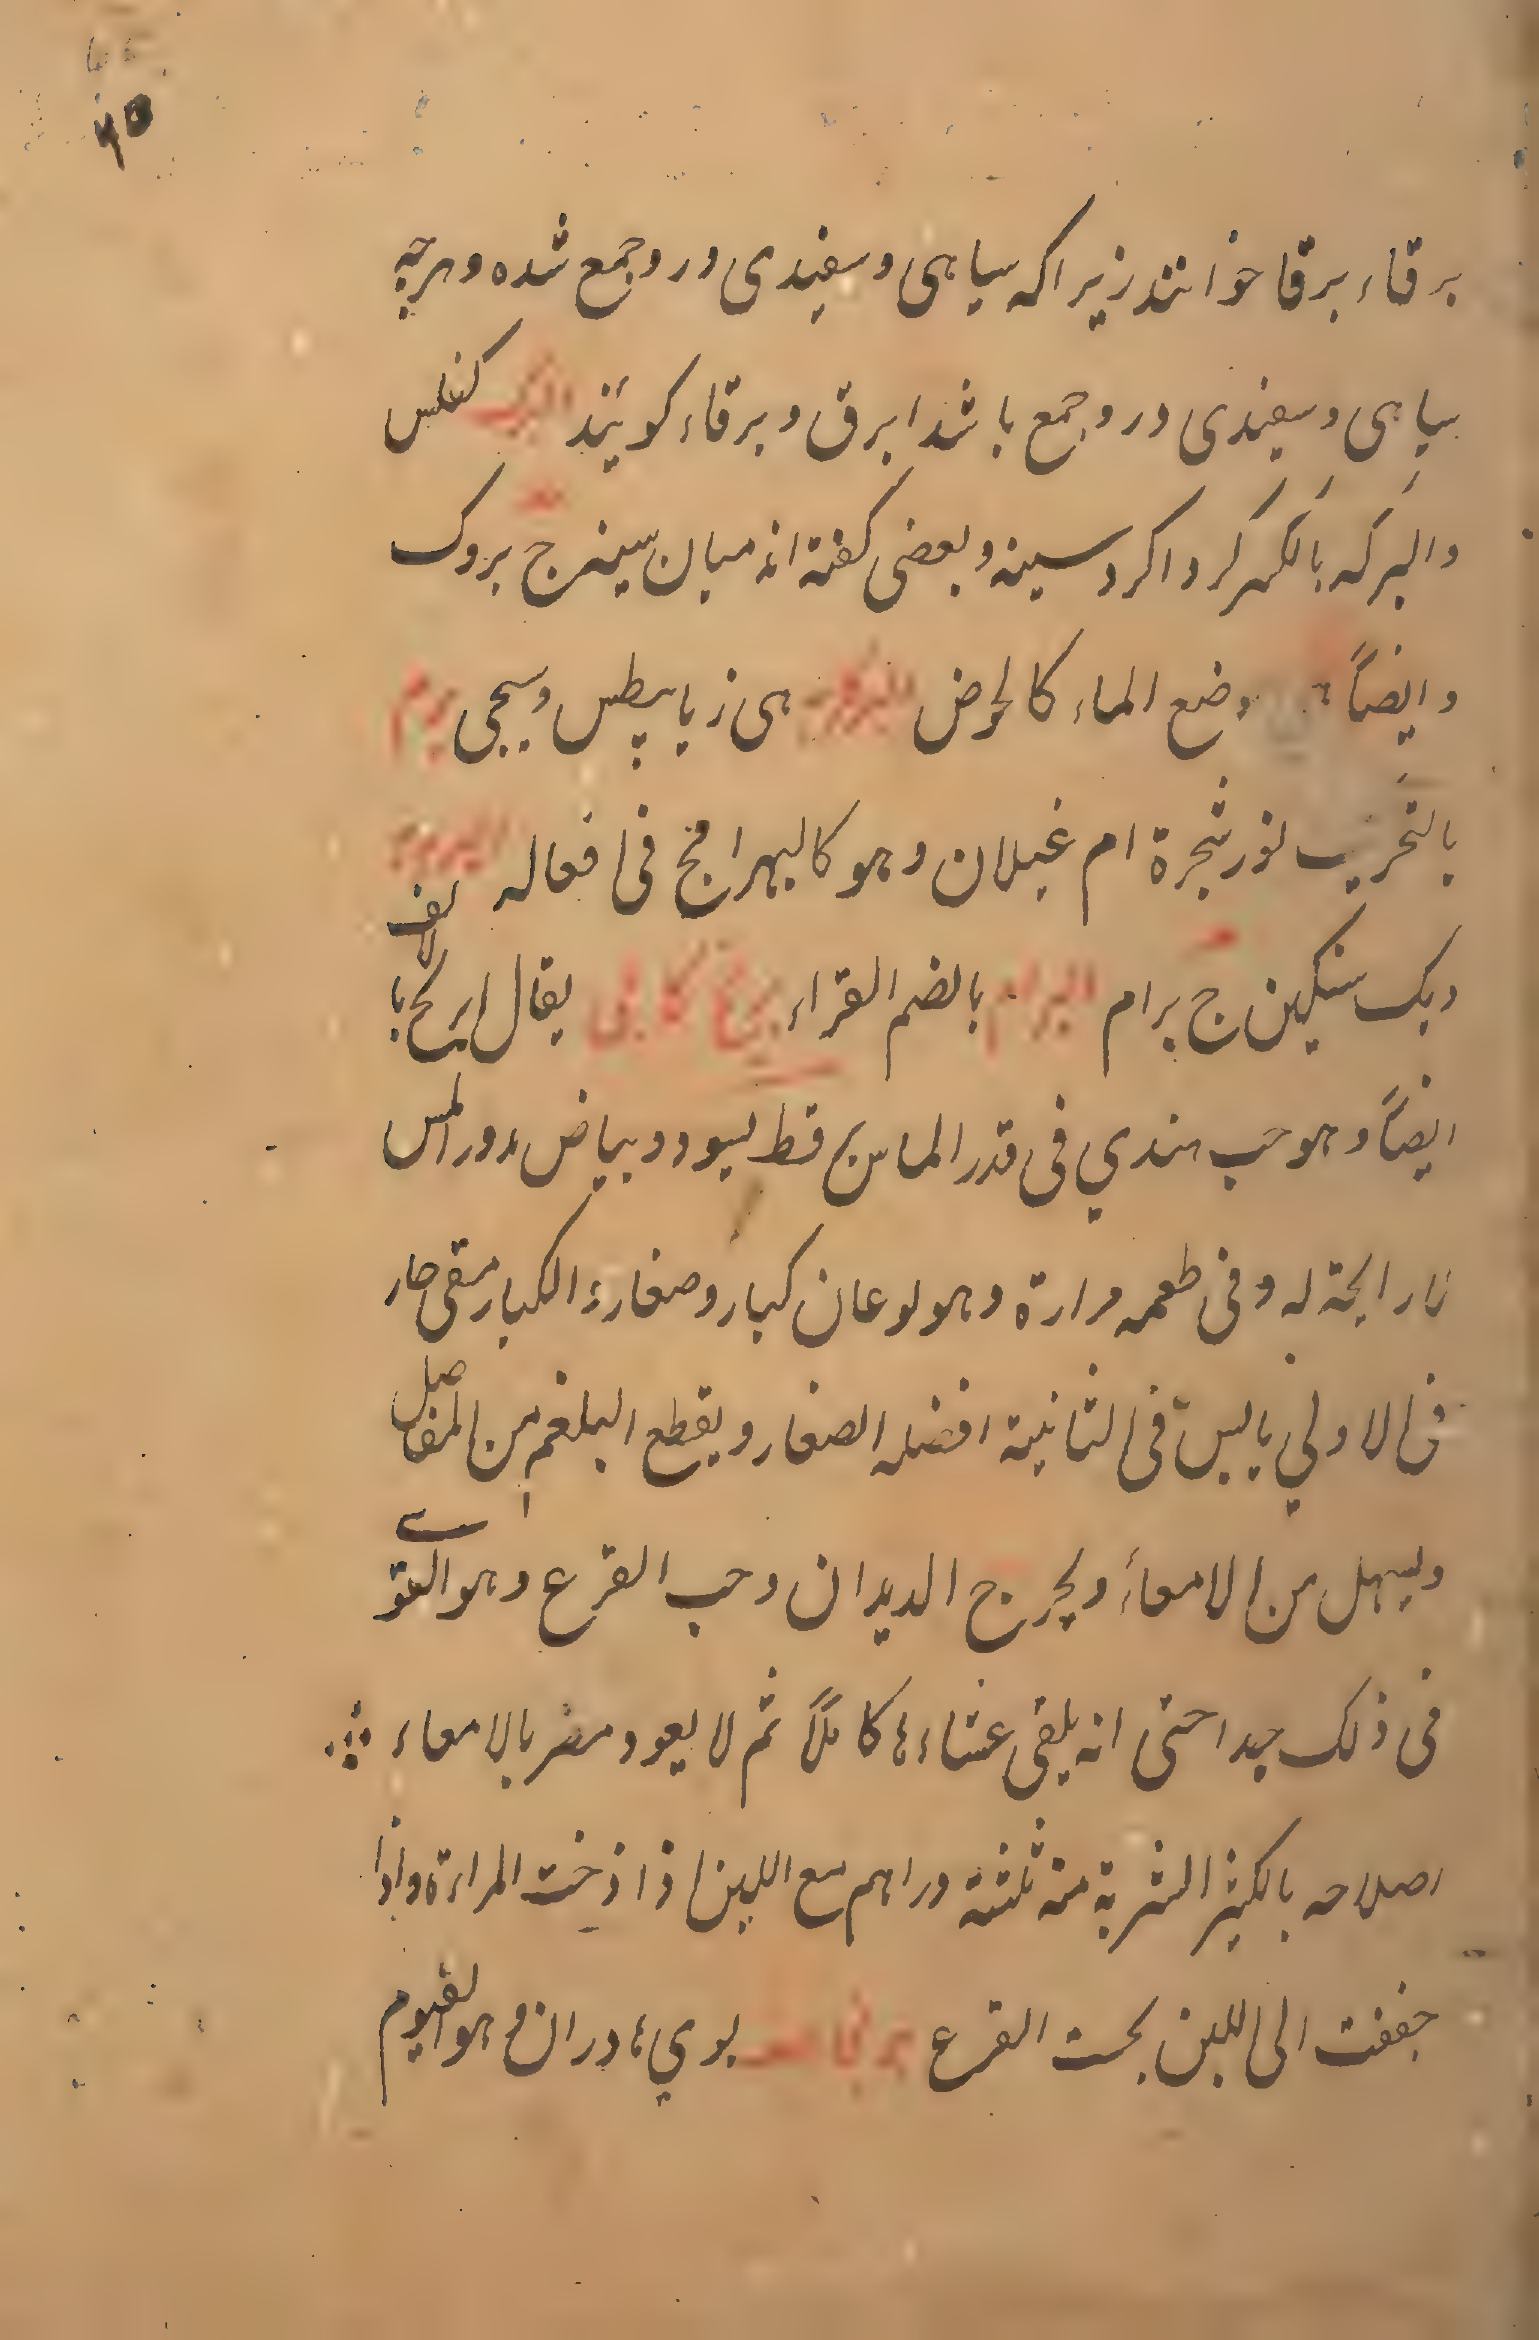 ۴۵
برقاء برقا خوانند زیرا که سیاهی و سفیدی درو جمع شده و هرچه
سیاهی و سفیدی درو جمع باشد ابرق و برقاء کویند البرک کفلس
والبرکه بالکسر کرداکرد سینه و بعضی کفته اند میان سینه ج بروک
وایضاً وضع الماء کالحوض هی زیابیطس وسیجی برم
بالتحریک نور شجرة ام غیلان وهو کالبهرامج فی افعاله البرمه
دیک سنکین ج برام البرام بالضم القراد برنج کابلی یقال ابرنج بالالف
ایضاً وهو حب هندی فی قدر الماش برقط بسود و بیاض مدور املس
لا رایحة له و فی طعمه مرارة وهو نوعان کبار وصغار والکبار منقی حار
فی الاولی یابس فی الثانیة افضله الصغار و یقطع البلغم من المفاصل
ویسهل من الامعاً ویخرج الدیدان وحب القرع وهو القوی
فی ذلک جیدا حتی انه یلقی غشاءها کاملاً ثم لا یعود مضر بالامعاء
اصلاحه بالکثیر الشربة منه ثلثة دراهم مع اللبن اذا ذخت المراءة واذا
جففت الی اللبن بحت القرع برنجاسف بوی مادران و هو القیوم